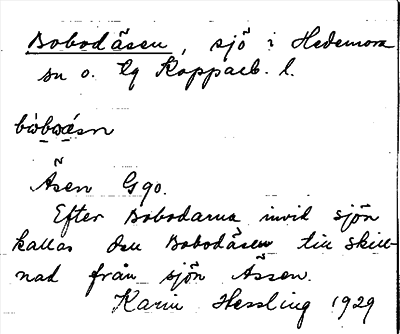 Bobodåsen, sjö i Hedemora
sn o. lg Kopparb. l.
Åsen G90.
Efter Bobodarna invid sjön
kallas den Bobodåsen till skill-
nad från sjön Åssen.
Karin Hessling 1929